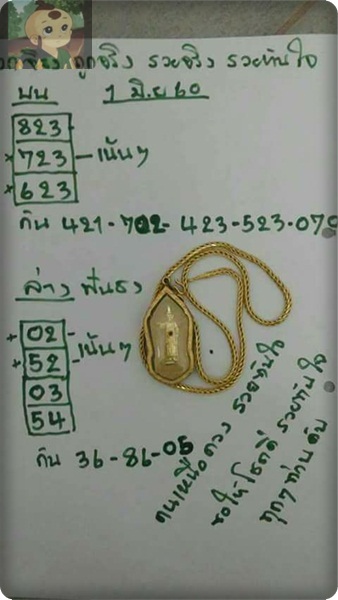 ถูกจริง รวยจริง รวยทันใจ
บน 1 มิ.ย 60
823
723 - เน้นๆ
623
กัน 421-702-423-523-070
ล่าง ฟันธง
02
52 - เน้นๆ
03
54
กัน 36-86-05
คนเหนือดวง รวยทันใจ
ขอให้โชคดี รวยทันใจ
ทุกๆท่านครับ